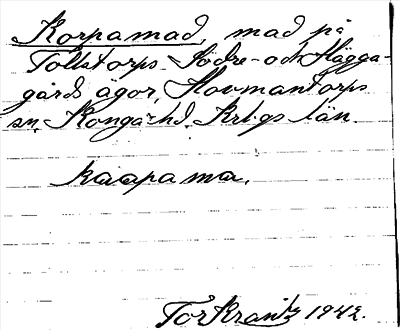 Korpamad, mad på
Tollstorps Södre- och Hägga-
gårds ägor, Hovmantorps
sn. Konga hd. Krbgs län.
kåapama.
Tor Krantz 1942.